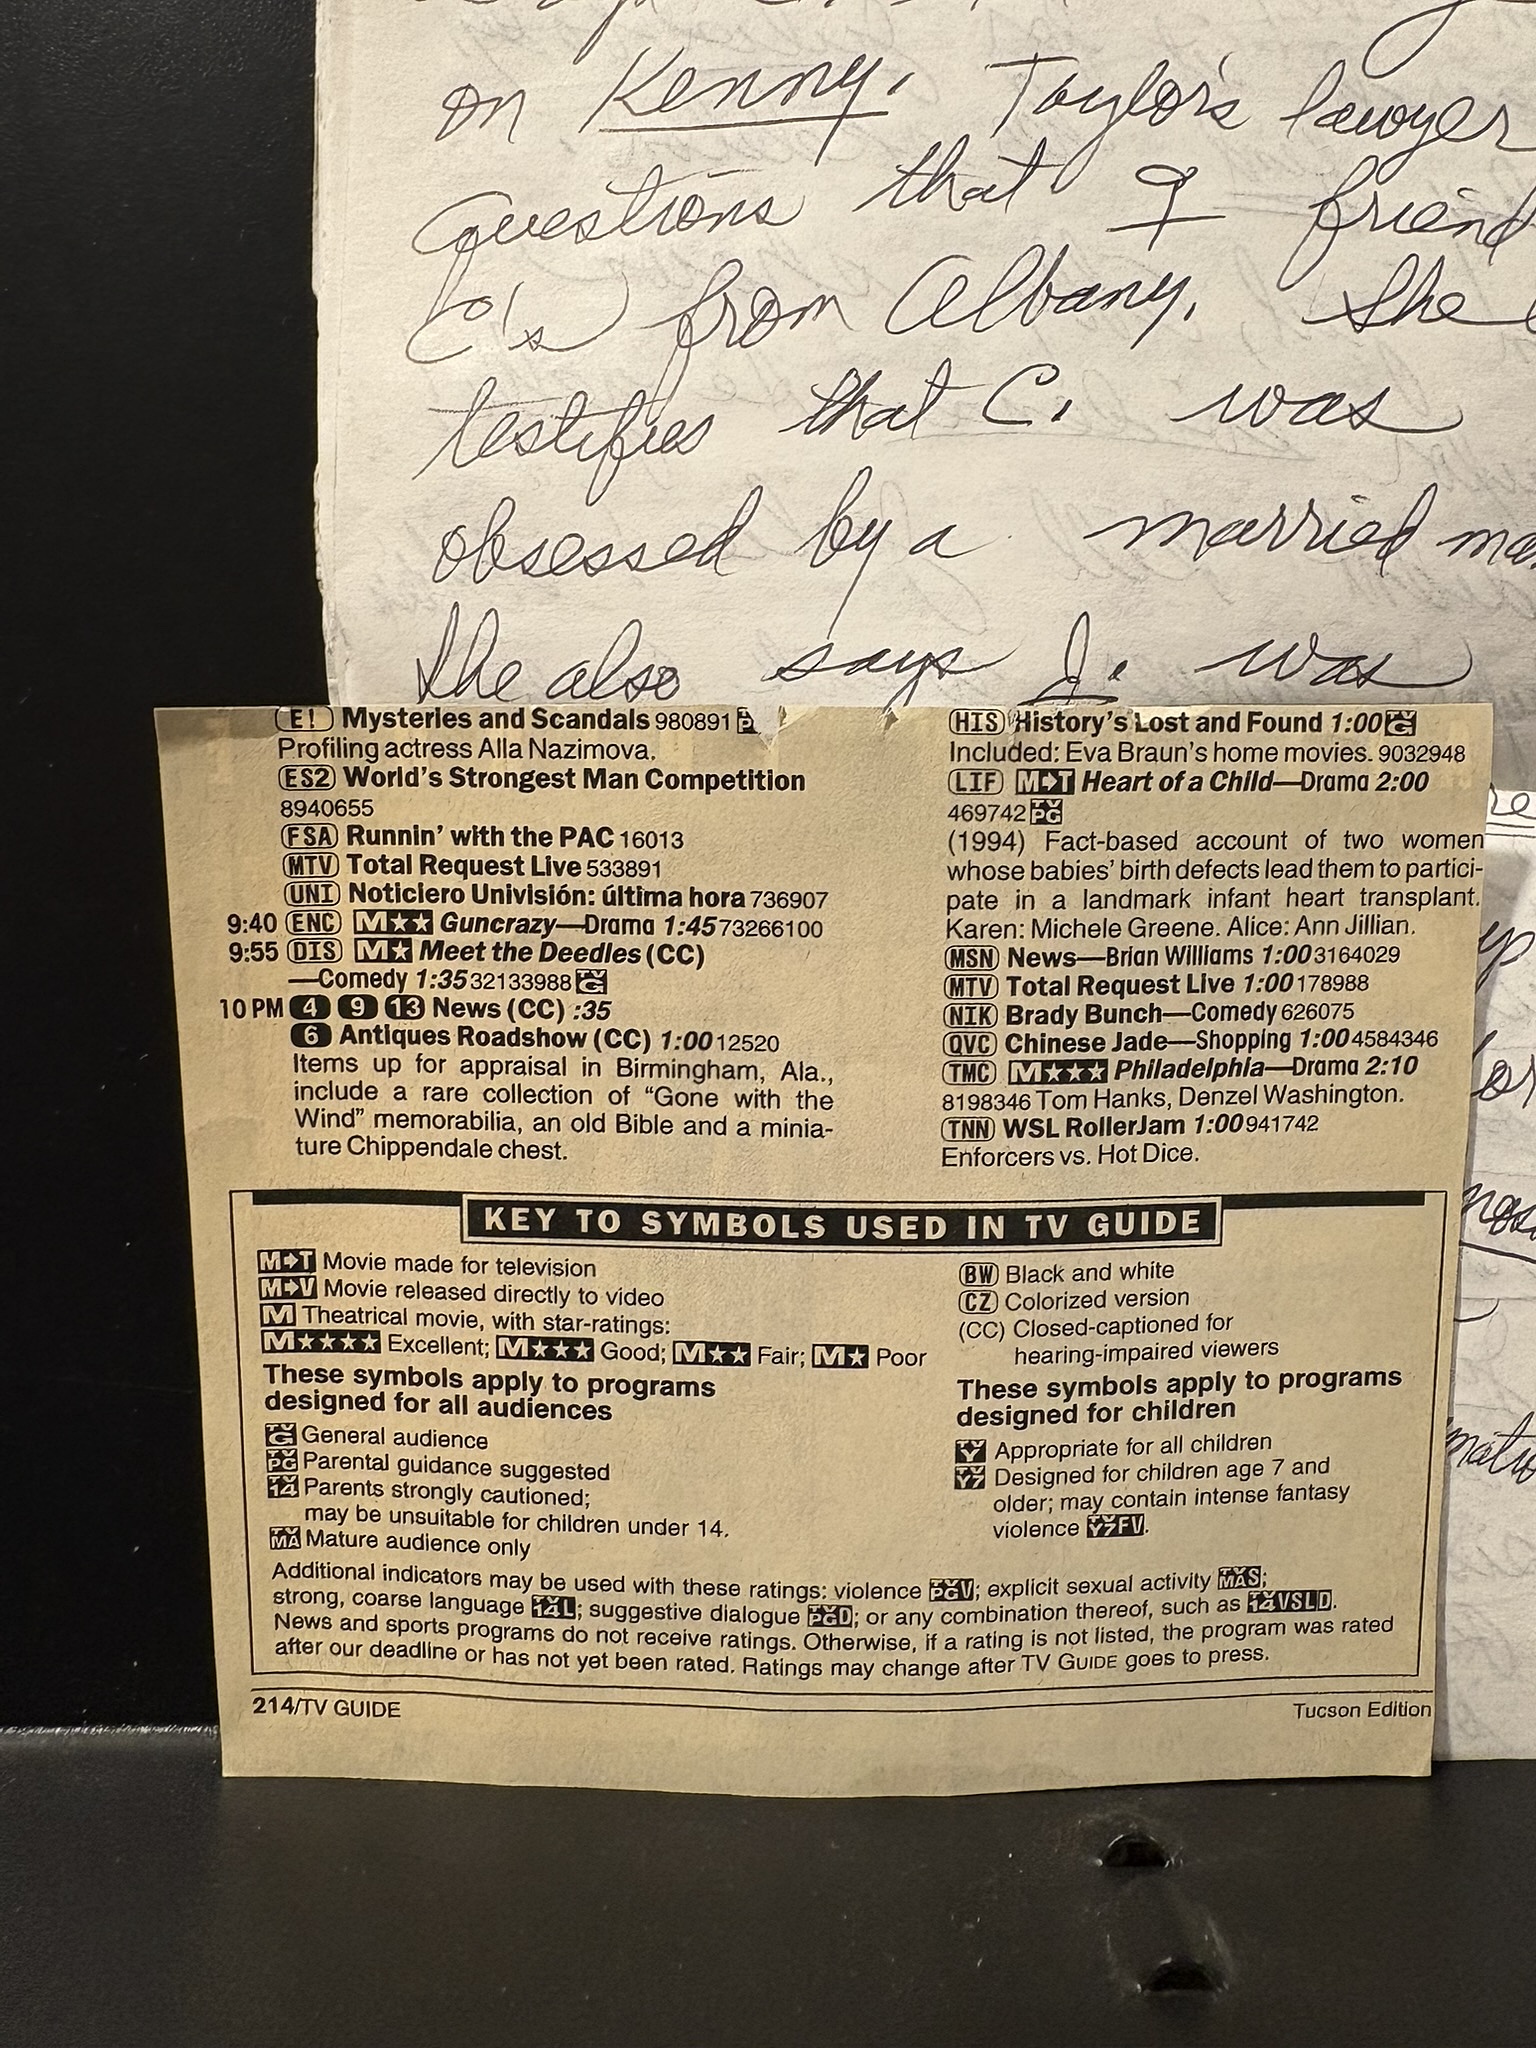 on Kenny. Taylor's lawyer
questions that ♀ friend
C's from Albany. She
testifies that C. was
obsessed by a married
She also says J. was
E! Mysteries and Scandals 980891
Profiling actress Alla Nazimova.
ES2 World's Strongest Man Competition
8940655
FSA Runnin' with the PAC 16013
MTV Total Request Live 533891
UNI Noticiero Univisión: última hora 736907
9:40 ENC M★★ Guncrazy—Drama 1:45 73266100
9:55 DIS M★ Meet the Deedles (CC)
—Comedy 1:35 32133988 TVG
10 PM 4 9 13 News (CC) :35
6 Antiques Roadshow (CC) 1:00 12520
Items up for appraisal in Birmingham, Ala.,
include a rare collection of "Gone with the
Wind" memorabilia, an old Bible and a minia-
ture Chippendale chest.
HIS History's Lost and Found 1:00 TVG
Included: Eva Braun's home movies. 9032948
LIF M➔T Heart of a Child—Drama 2:00
469742 TVPG
(1994) Fact-based account of two women
whose babies' birth defects lead them to partici-
pate in a landmark infant heart transplant.
Karen: Michele Greene. Alice: Ann Jillian.
MSN News—Brian Williams 1:00 3164029
MTV Total Request Live 1:00 178988
NIK Brady Bunch—Comedy 626075
QVC Chinese Jade—Shopping 1:00 4584346
TMC M★★★ Philadelphia—Drama 2:10
8198346 Tom Hanks, Denzel Washington.
TNN WSL RollerJam 1:00 941742
Enforcers vs. Hot Dice.
KEY TO SYMBOLS USED IN TV GUIDE
M➔T Movie made for television
M➔V Movie released directly to video
M Theatrical movie, with star-ratings:
M★★★★ Excellent; M★★★ Good; M★★ Fair; M★ Poor
These symbols apply to programs
designed for all audiences
TVG General audience
TVPG Parental guidance suggested
TV14 Parents strongly cautioned;
may be unsuitable for children under 14.
TVMA Mature audience only
BW Black and white
CZ Colorized version
(CC) Closed-captioned for
hearing-impaired viewers
These symbols apply to programs
designed for children
TVY Appropriate for all children
TVY7 Designed for children age 7 and
older; may contain intense fantasy
violence TVY7FV.
Additional indicators may be used with these ratings: violence TVPGV; explicit sexual activity TVMAS;
strong, coarse language TV14L; suggestive dialogue TVPGD; or any combination thereof, such as TV14VSLD.
News and sports programs do not receive ratings. Otherwise, if a rating is not listed, the program was rated
after our deadline or has not yet been rated. Ratings may change after TV GUIDE goes to press.
214/TV GUIDE
Tucson Edition